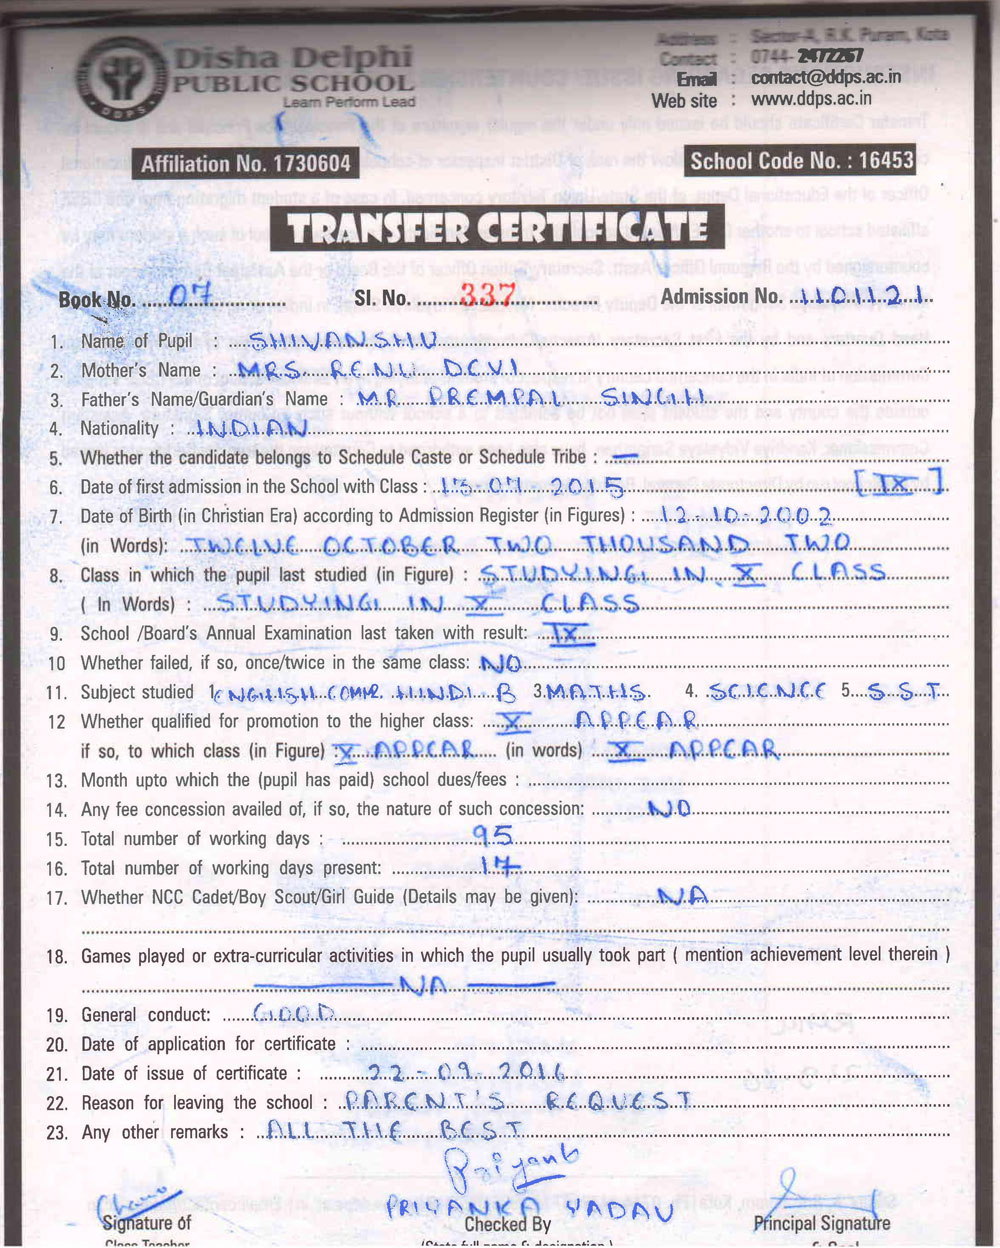 Disha Delphi
PUBLIC SCHOOL
Learn Perform Lead
DDPS
Address : Sector-A, R.K. Puram, Kota
Contact : 0744-2472267
Email : contact@ddps.ac.in
Web site : www.ddps.ac.in
Affiliation No. 1730604
School Code No. : 16453
TRANSFER CERTIFICATE
Book No. 07 Sl. No. 337 Admission No. 1101121
1. Name of Pupil : SHIVANSHU
2. Mother's Name : MRS. RENU DEVI
3. Father's Name/Guardian's Name : MR. PREMPAL SINGH
4. Nationality : INDIAN
5. Whether the candidate belongs to Schedule Caste or Schedule Tribe : —
6. Date of first admission in the School with Class : 13-07-2015 [IX]
7. Date of Birth (in Christian Era) according to Admission Register (in Figures) : 12-10-2002
(in Words): TWELVE OCTOBER TWO THOUSAND TWO
8. Class in which the pupil last studied (in Figure) : STUDYING IN X CLASS
( In Words) : STUDYING IN X CLASS
9. School /Board's Annual Examination last taken with result: IX
10 Whether failed, if so, once/twice in the same class: NO
11. Subject studied 1. ENGLISH COMM. HINDI B 3. MATHS 4. SCIENCE 5. S.S.T
12 Whether qualified for promotion to the higher class: X APPEAR
if so, to which class (in Figure) X APPEAR (in words) X APPEAR
13. Month upto which the (pupil has paid) school dues/fees :
14. Any fee concession availed of, if so, the nature of such concession: NO
15. Total number of working days : 95
16. Total number of working days present: 17
17. Whether NCC Cadet/Boy Scout/Girl Guide (Details may be given): NA
18. Games played or extra-curricular activities in which the pupil usually took part ( mention achievement level therein )
— NA —
19. General conduct: GOOD
20. Date of application for certificate :
21. Date of issue of certificate : 22-09-2016
22. Reason for leaving the school : PARENT'S REQUEST
23. Any other remarks : ALL THE BEST
Priyanka
PRIYANKA YADAV
Signature of Checked By Principal Signature
Class Teacher (State full name & designation ) & Seal